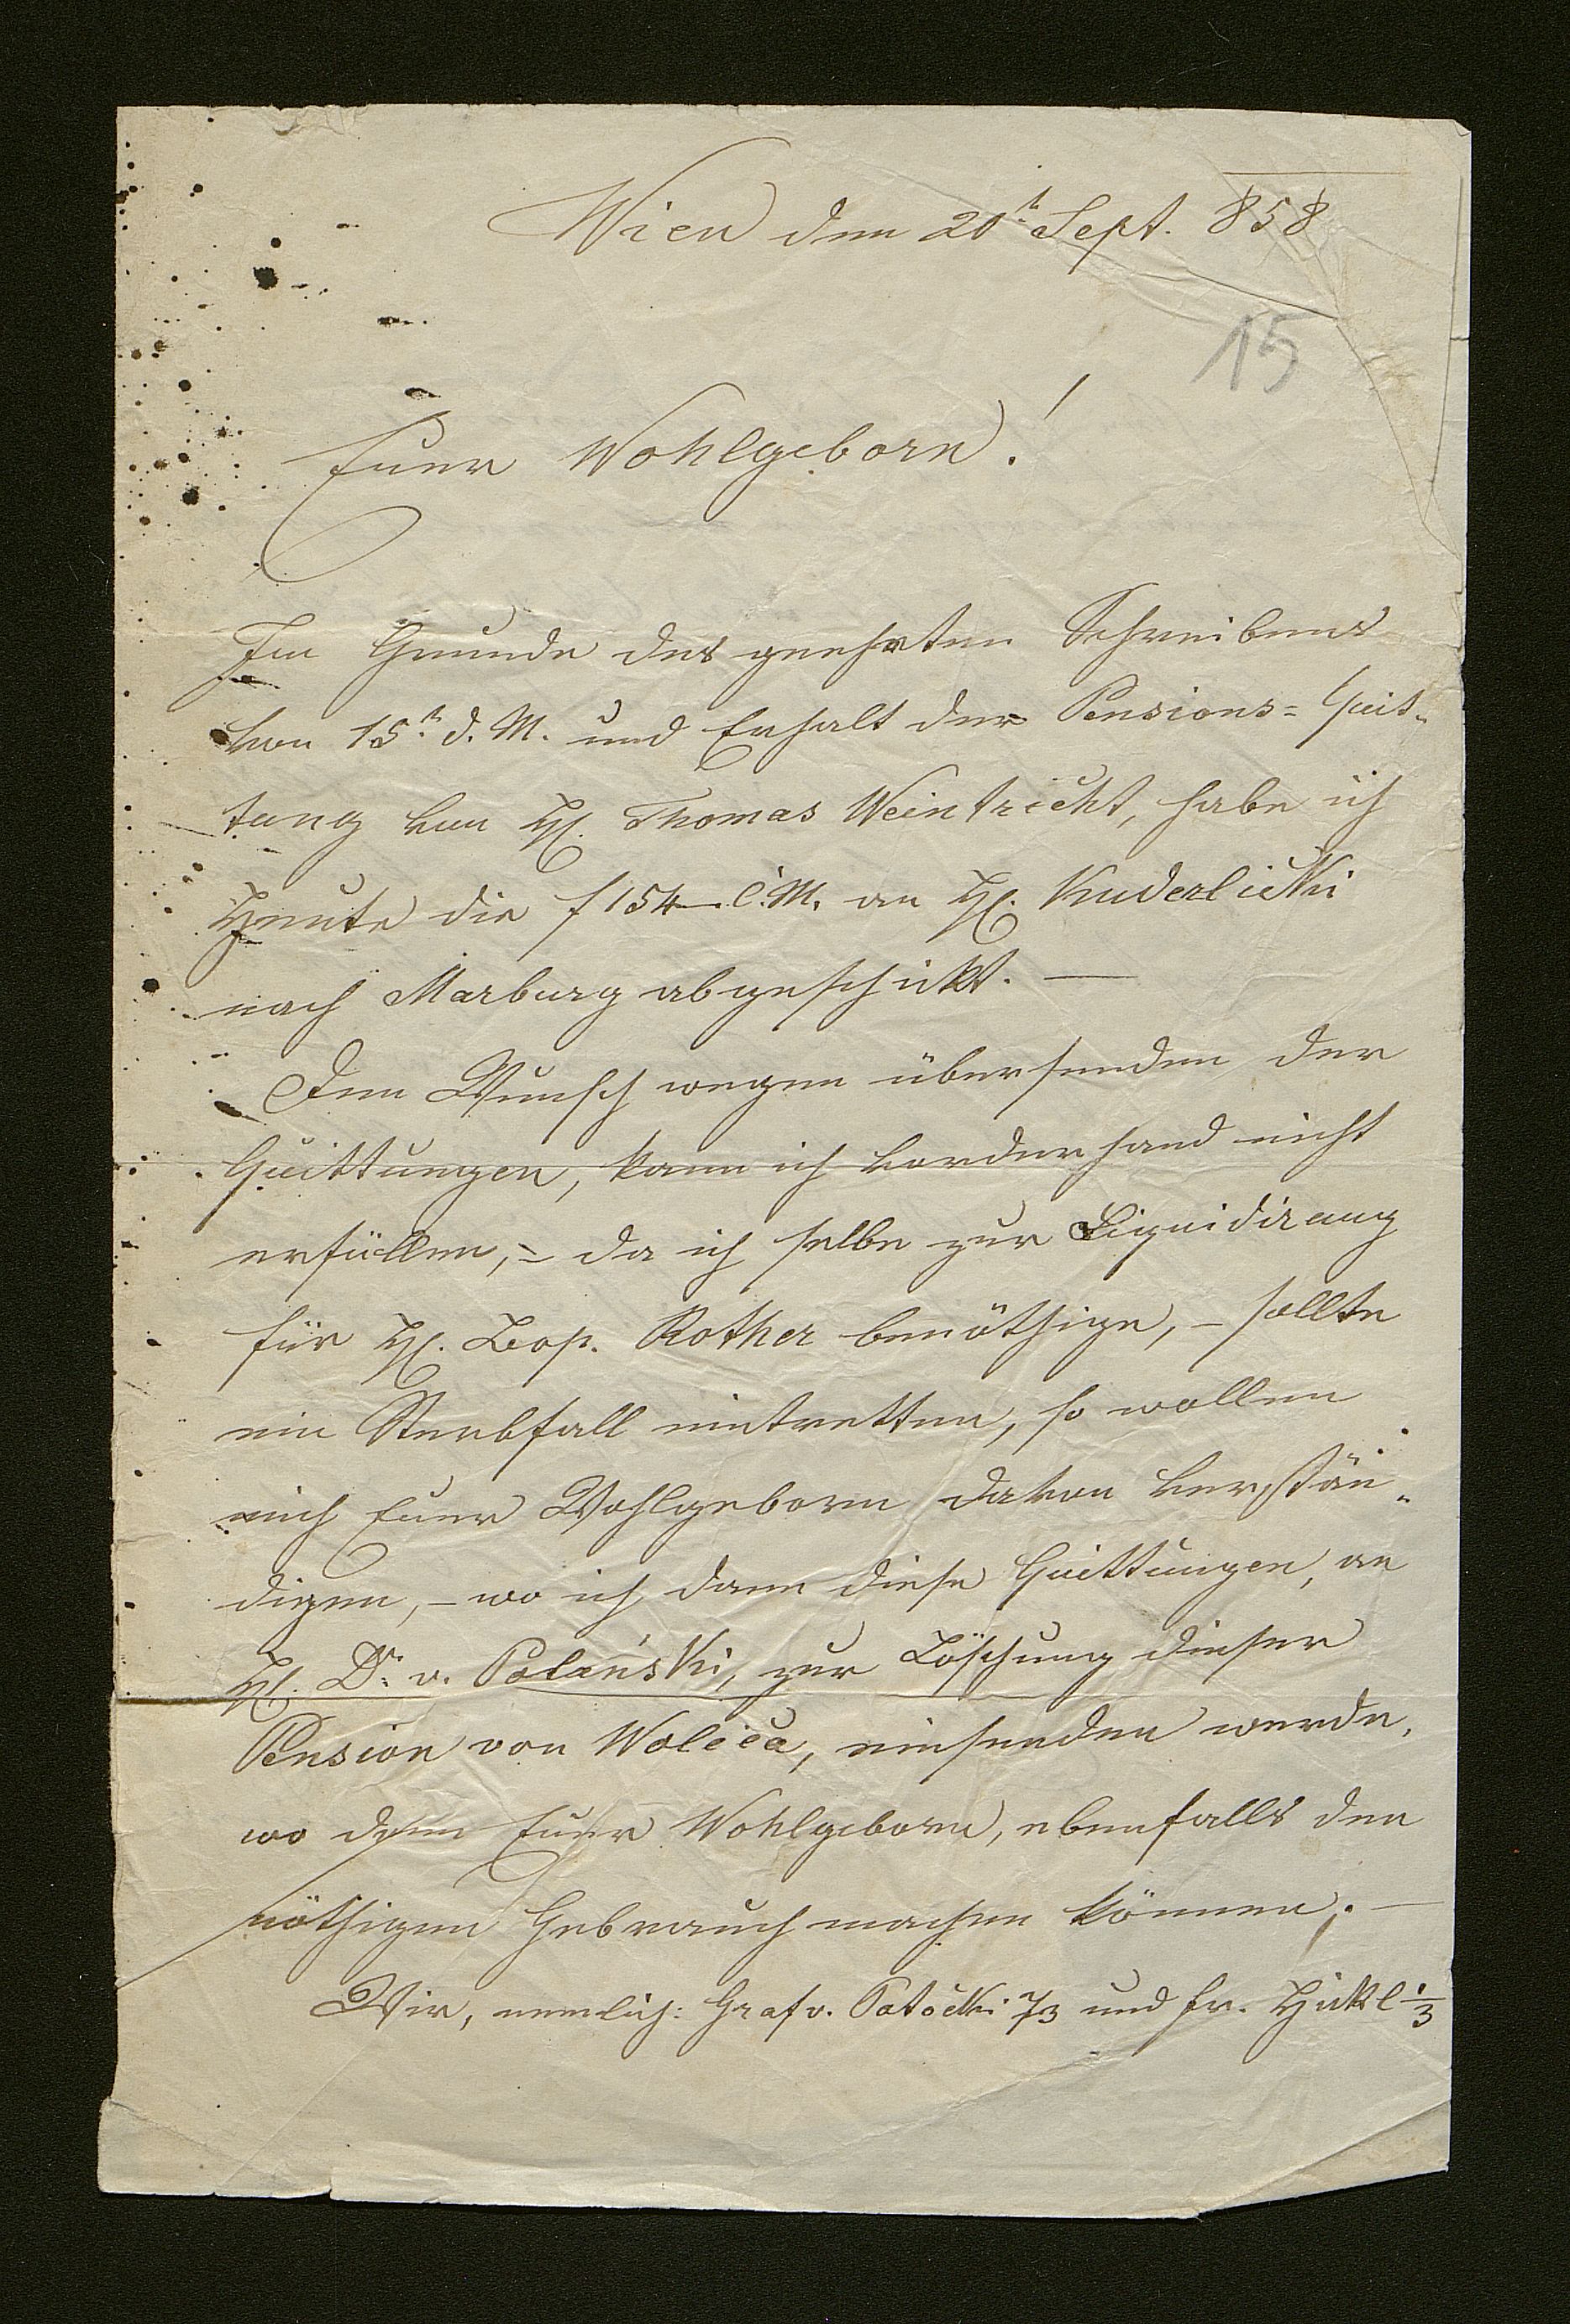 Wien den 20t Sept. 858
15
Euer Wohlgeborn!
Im Grunde des geehrten Schreibens
von 15t d. M. und Erhalt der Pensions= Quit-
tung von H. Thomas Weintricht, habe ich
Heute die f 154 – C. M. an H. Kuderlicki
nach Marburg abgeschikt. —
Den Wunsch wegen übersenden der
Quittungen, kann ich vorderhand nicht
erfüllen, – da ich selbe zur Liquidirung
für H. Leop. Rother benöthige, – sollte
ein Sterbfall eintretten, so wollen
mich Euer Wohlgeborn davon verstän-
digen, – wo ich dann diese Quittungen, an
H. Dr. v. Polański, zur Löschung dieser
Pension von Wolica, einsenden werde,
wo dann Euer Wohlgeborn, ebenfalls den
nöthigen Gebrauch machen können. —
Wir, nemlich: Graf v. Potocki 2/3 und Fr. Hickl 1/3